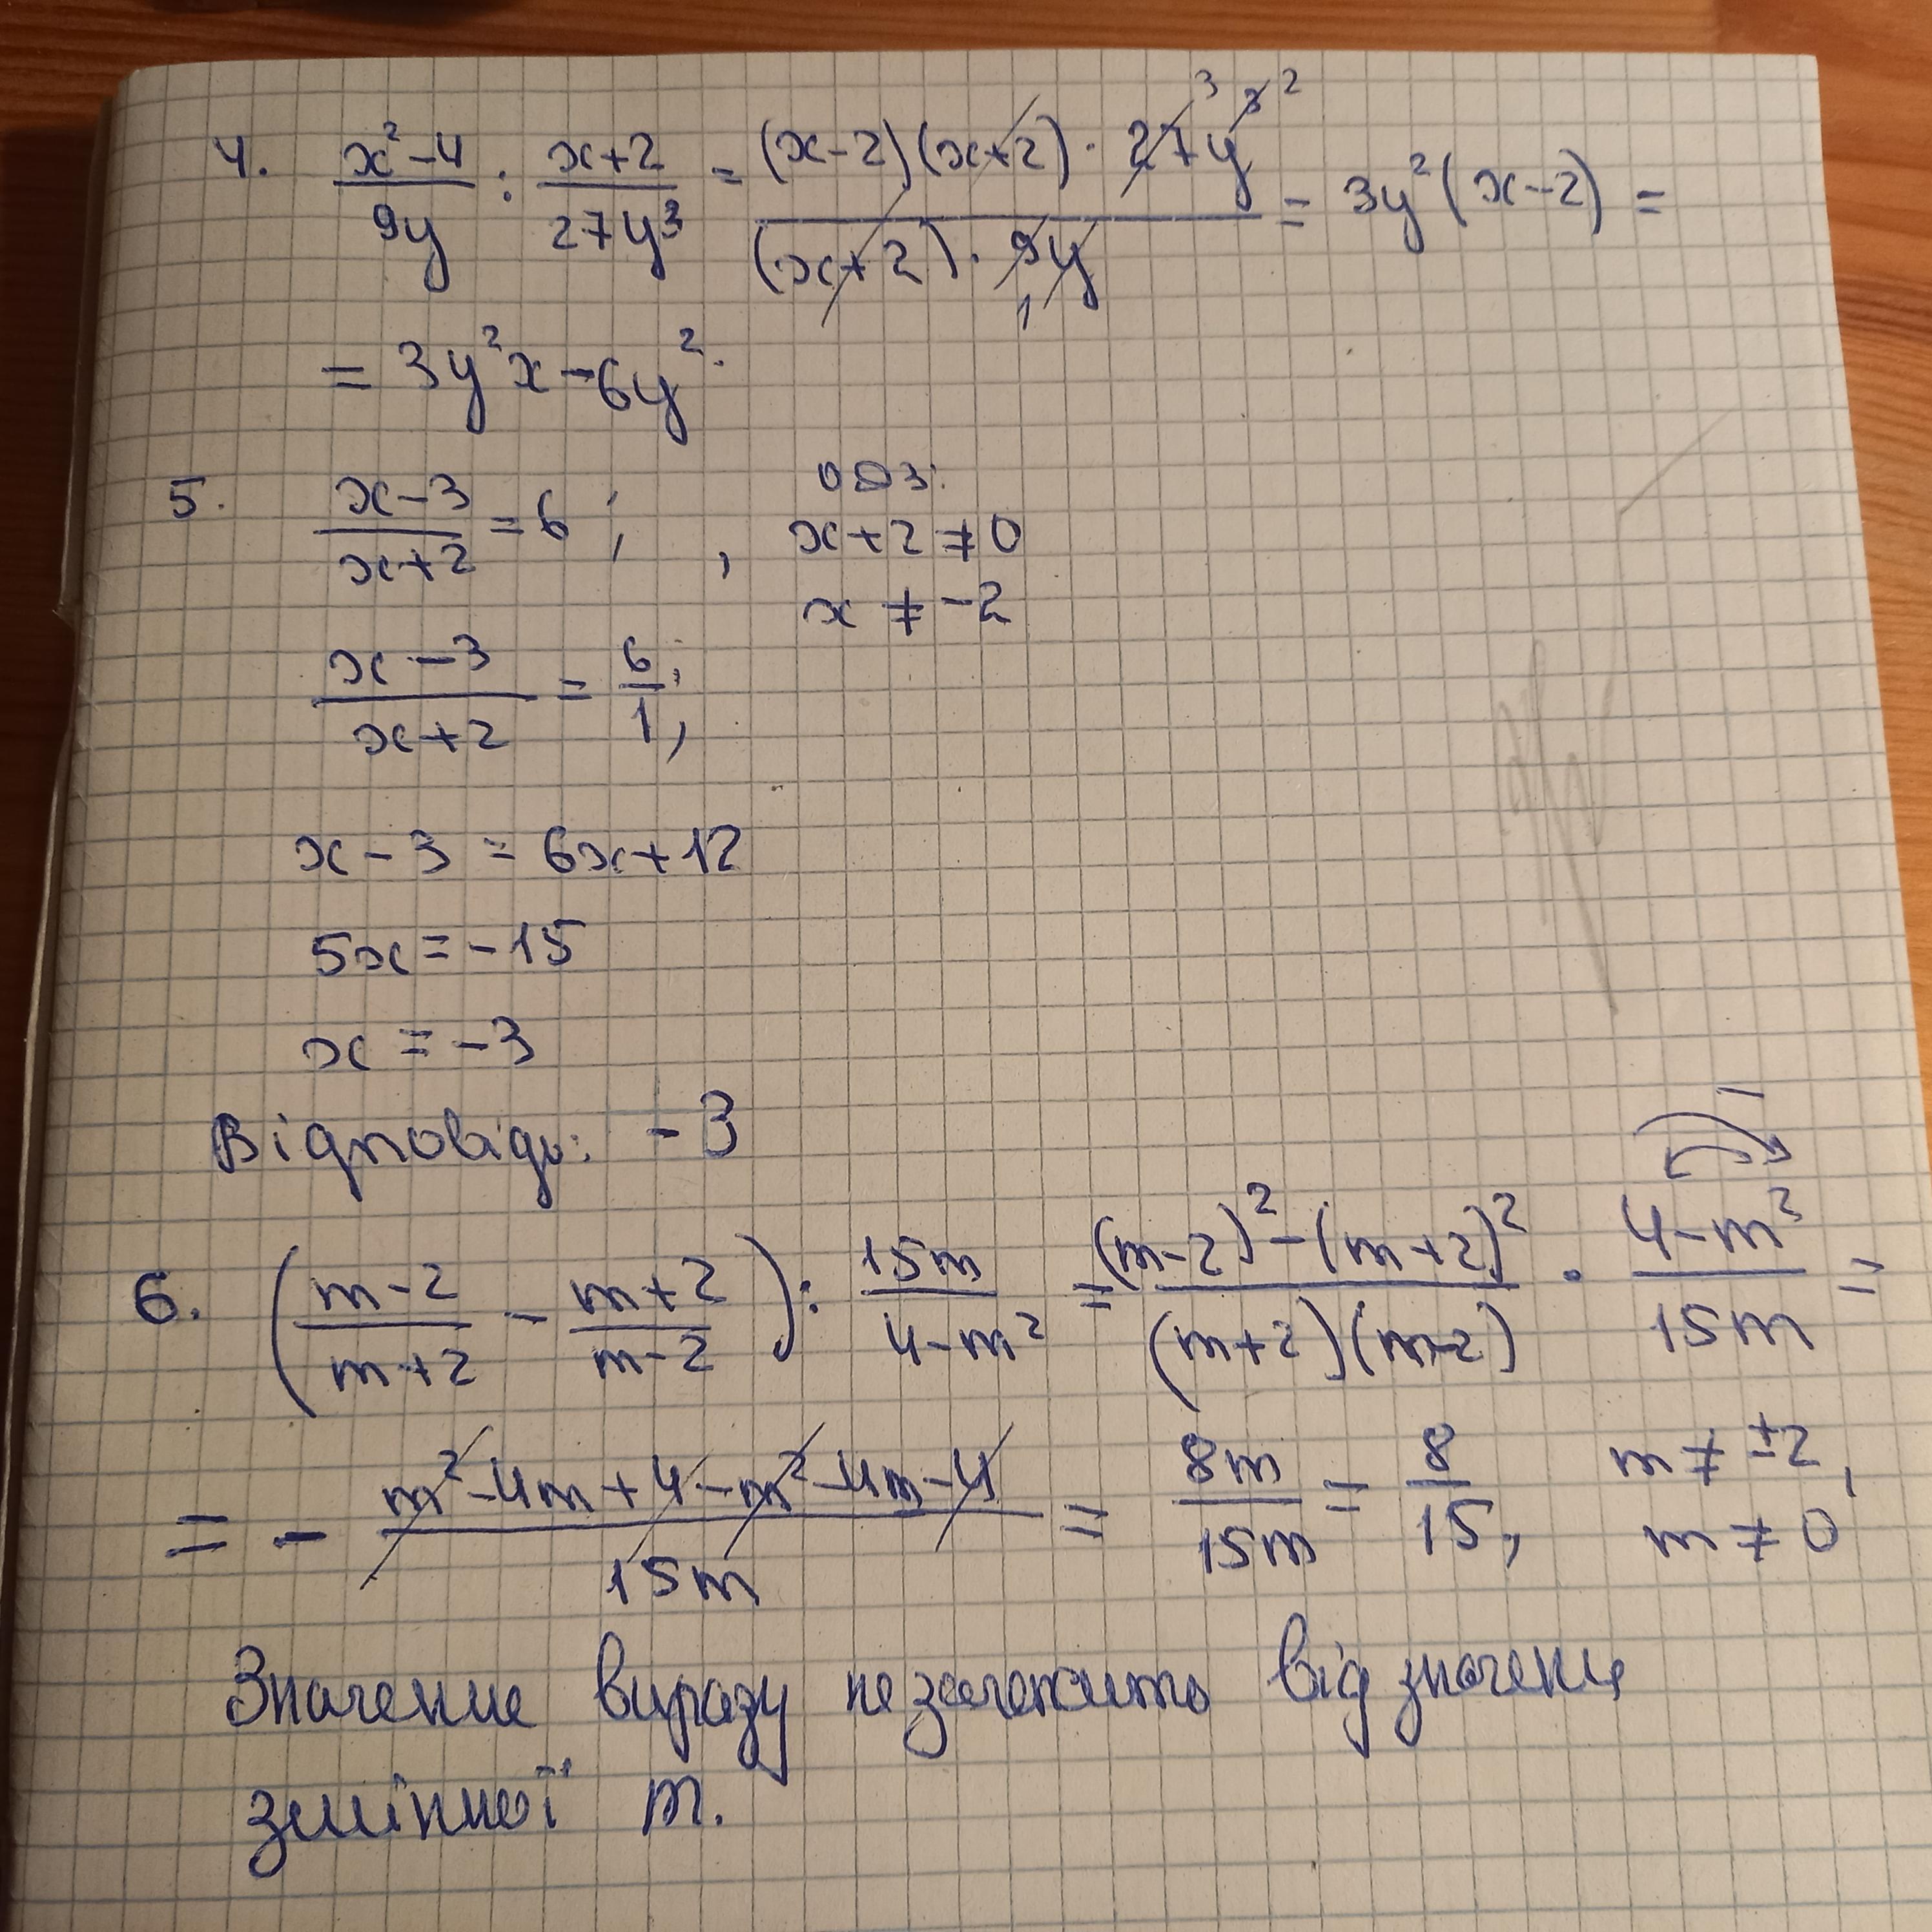 4. (x²-4)/(9y) : (x+2)/(27y³) = ((x-2)(x+2) · 27y³ ³ ²)/((x+2) · 9y 1) = 3y²(x-2) =
= 3y²x - 6y².
5. (x-3)/(x+2) = 6; , ОДЗ:
x+2 ≠ 0
x ≠ -2
(x-3)/(x+2) = 6/1;
x - 3 = 6x + 12
5x = -15
x = -3
Відповідь: -3
6. ((m-2)/(m+2) - (m+2)/(m-2)) : (15m)/(4-m²) = ((m-2)² - (m+2)²)/((m+2)(m-2)) · (4-m²)/(15m) =
= - (m² - 4m + 4 - m² - 4m - 4)/(15m) = (8m)/(15m) = 8/15, m ≠ ±2,
m ≠ 0
Значення виразу не залежить від значень
змінної m.